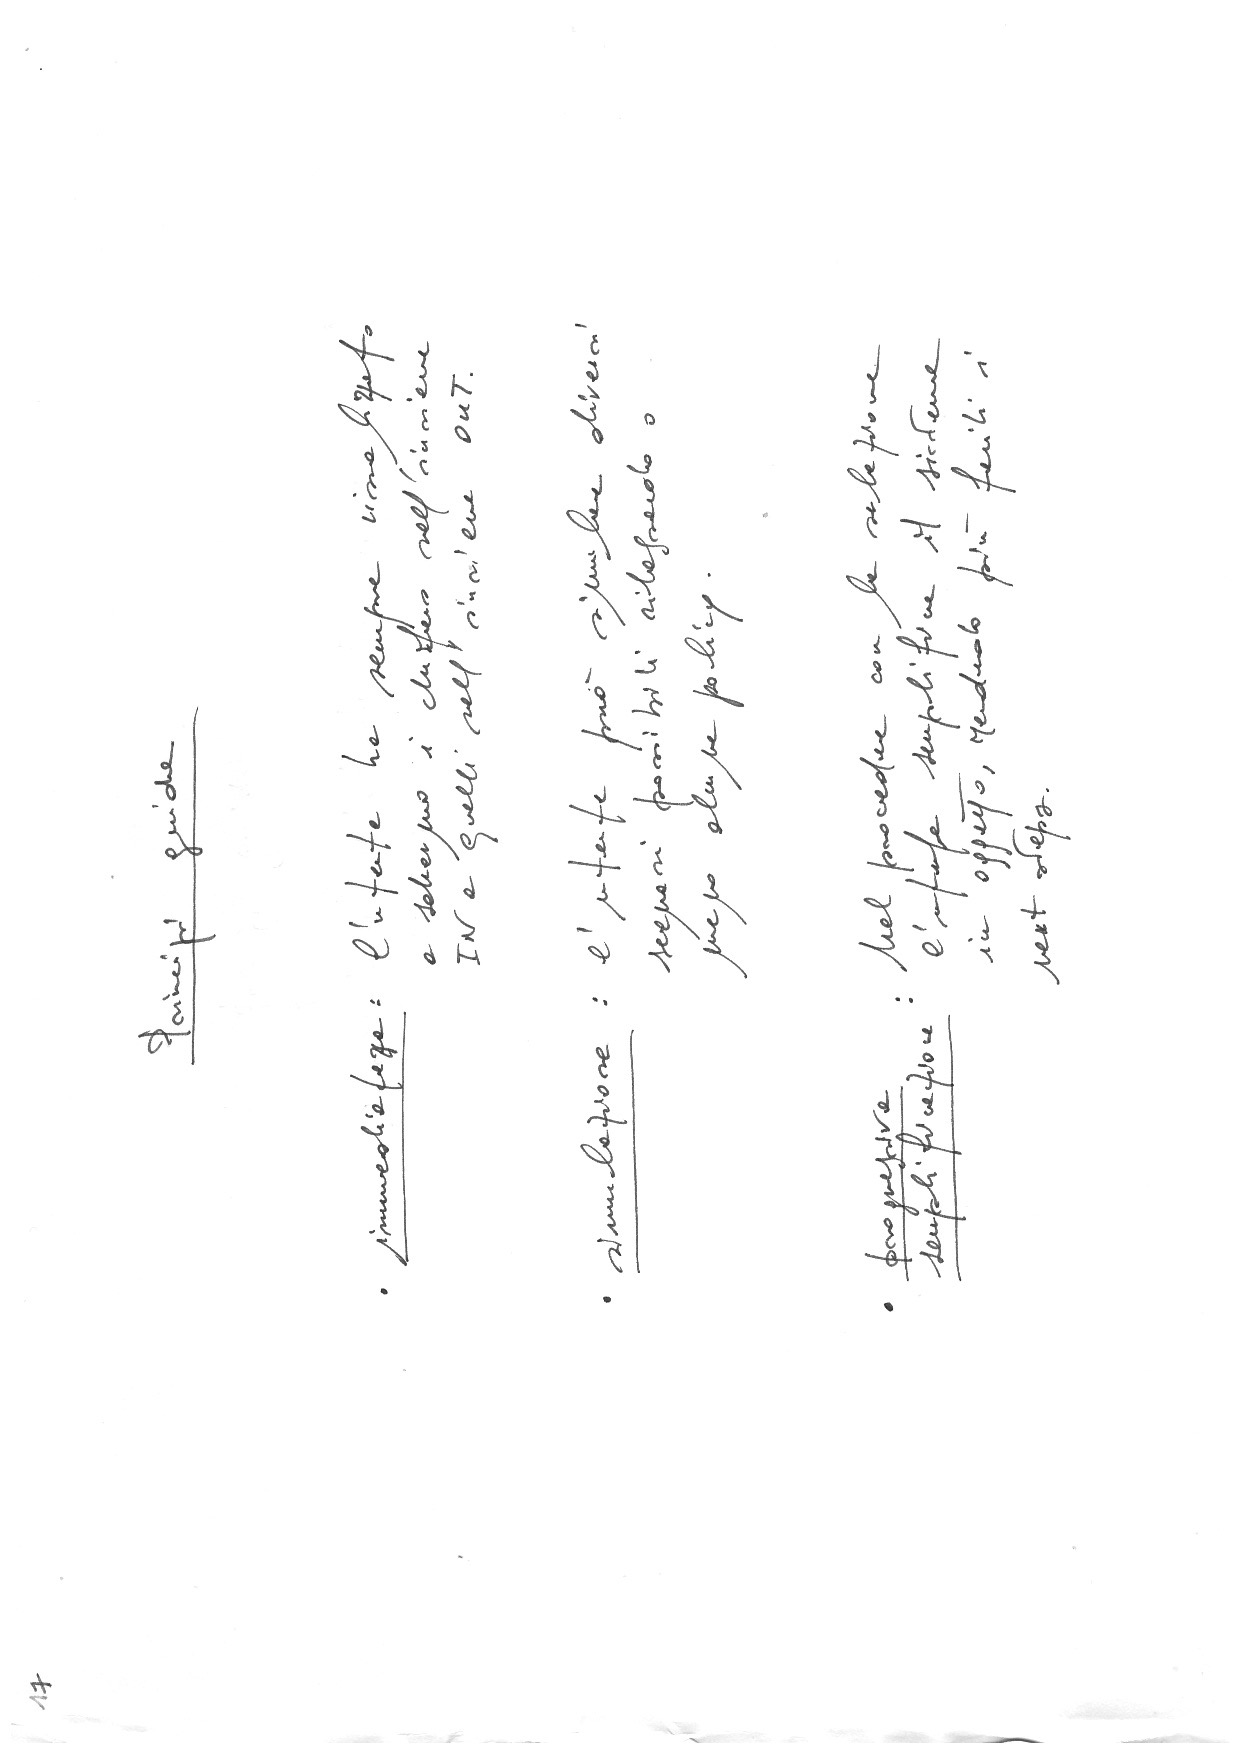 17
Principi guida
• immediatezza : l'utente ha sempre visualizzato
a schermo i clusters nell'insieme
IN e quelli nell'insieme OUT.
• simulazione : l'utente può simulare diversi
scenari possibili rilassando o
meno alcune policy.
• progressiva : Nel procedere con la selezione
semplificazione l'utente semplifica il sistema
in oggetto, rendendo più facili i
next steps.